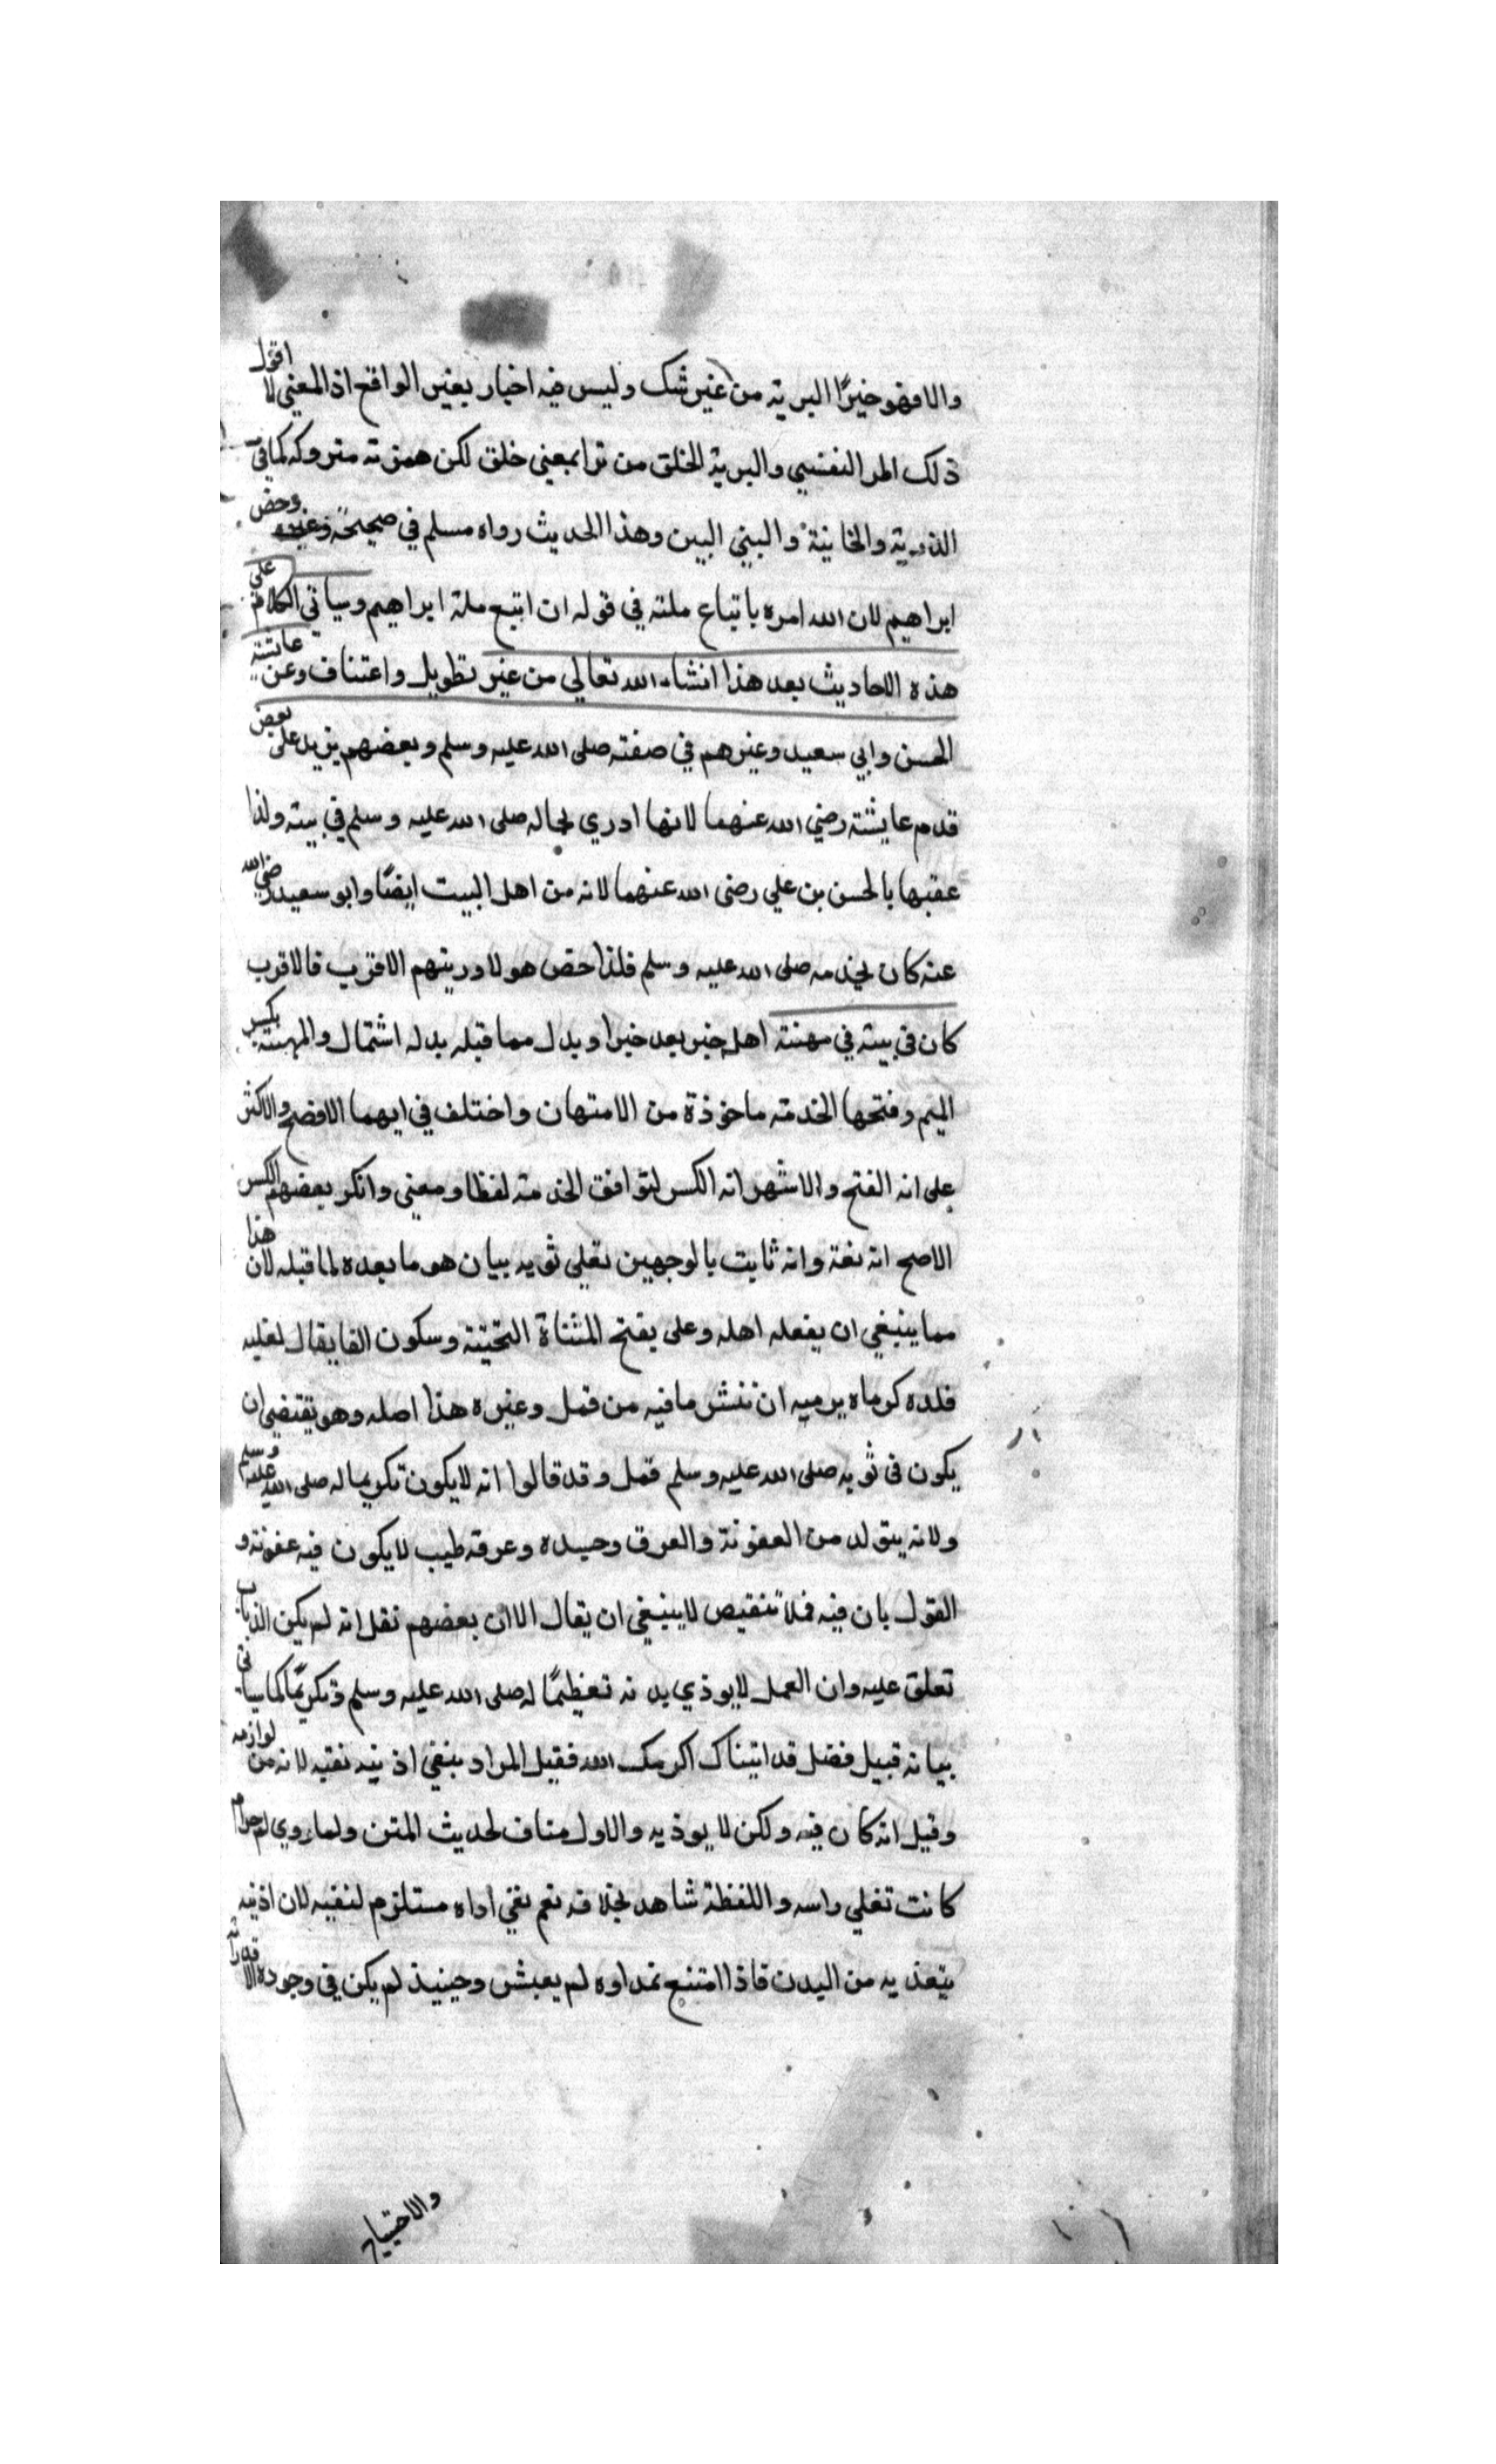 والا فهو خيرًا البرية من غير شك وليس فيه اخبار بغير الواقع اذ المعني لا اقول
ذلك المر النفسي والبرية الخلق من برا بمعني خلق لكن همزته متروكه كما في
الذرية والخانية والبني البين وهذا الحديث رواه مسلم في صحيحه وغيره وخص
ابراهيم لان الله امره باتباع ملته في قوله ان اتبع ملة ابراهيم وسياتي الكلام علي
هذه الاحاديث بعد هذا انشاء الله تعالي من غير تطويل واعتناف وعن عائشة
الحسن وابي سعيد وغيرهم في صفته صلى الله عليه وسلم وبعضهم يزيد على بعض
قدم عايشة رضي الله عنهما لانها ادري بحاله صلى الله عليه وسلم في بيته ولذا
عقبها بالحسن بن علي رضى الله عنهما لانه من اهل البيت ايضًا وابو سعيد رضي الله
عنه كان يخدمه صلى الله عليه وسلم فلذا خص هولا ورتبهم الاقرب فالاقرب
كان في بيته في مهنة اهله خبر بعد خبر او بدل مما قبله بدله اشتمال والمهنة بكسر
الميم وفتحها الخدمة ماخوذة من الامتهان واختلف في ايهما الافصح والاكثر
على انه الفتح والاشهر انه الكسر لتوافق الخدمة لفظا ومعني وانكر بعضهم الكسر
الاصح انه لغة وانه ثابت بالوجهين تفلي ثوبه بيان هو ما بعده لما قبله لان هذا
مما ينبغي ان يفعله اهله وعلى بفتح المثناة التحتية وسكون الفا يقال لفليه
فلده كرماه يرميه ان ننش ما فيه من قمل وغيره هذا اصله وهو يقتضي ان
يكون في ثوبه صلى الله عليه وسلم قمل وقد قالوا انه لا يكون تكريما له صلى الله عليه وسلم
ولانه يتولد من العفونة والعرق وجسده وعرقه طيب لا يكون فيه عفونة و
القول بان فيه قملا تنقيص لا ينبغي ان يقال الا ان بعضهم نقل انه لم يكن الذباب
تعلق عليه وان العمل لا يوذي بدنه تعظيمًا له صلى الله عليه وسلم وتكريمًا كما سياتي
بيانه قبيل فصل قد اتيناك اكرمك الله فقيل المراد بنفي اذيته نفيه لانه من لوازمه
وقيل انه كان فيه ولكن لا يوذيه والاول مناف لحديث المتن ولما روي ام حرام
كانت تفلي راسه واللفظة شاهد بخلافه نعم نفي اداه مستلزم لنفيه لان اذيته
بتغذيه من البدن فاذا امتنع غداوه لم يعش وحينيذ لم يكن في وجوده الا
والاحتياج